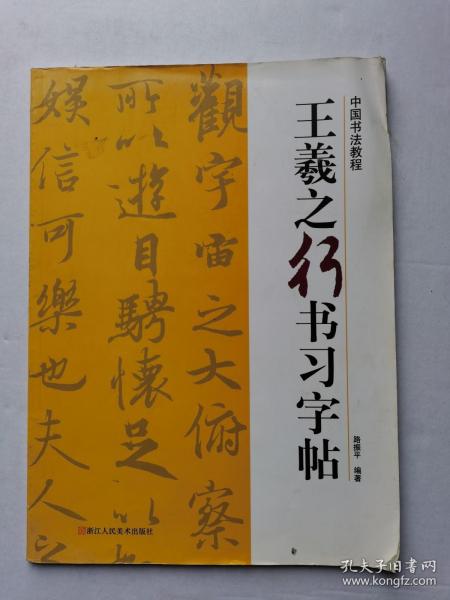 中国书法教程
王羲之行书习字帖
路振平 编著
觀宇宙之大俯察
所以遊目騁懷足以
娱信可樂也夫人之
浙江人民美术出版社
孔夫子旧书网
www.kongfz.com